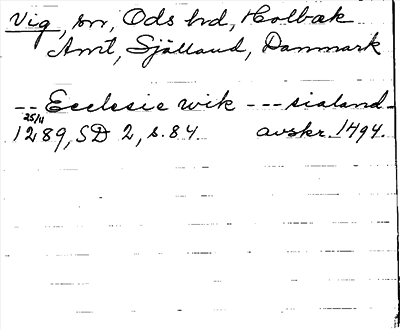 Vig, sn, Ods hd, Holbæk
Amt, Själland, Danmark
-- Ecclesie wik --- sialand -
25/11
1289, SD 2, s. 84. avskr. 1494.